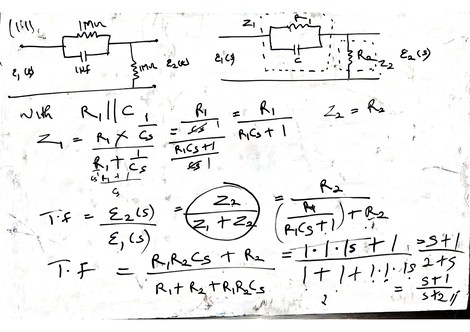 (iii)
1MΩ
1μf
1MΩ
ε₁(s) ε₂(s)
Z₁
R₁
C
R₂
Z₂
ε₁(s) ε₂(s)
with R₁ || C
Z₁ = (R₁ × 1/Cs) / (R₁ + 1/Cs) = (R₁/Cs) / ((R₁Cs + 1)/Cs) = R₁ / (R₁Cs + 1) Z₂ = R₂
T.f = ε₂(s) / ε₁(s) = Z₂ / (Z₁ + Z₂) = R₂ / ((R₁ / (R₁Cs + 1)) + R₂)
T.F = (R₁R₂Cs + R₂) / (R₁ + R₂ + R₁R₂Cs) = (1.1.1s + 1) / (1 + 1 + 1.1.1s) = (s+1) / (2+s)
= (s+1) / (s+2) //